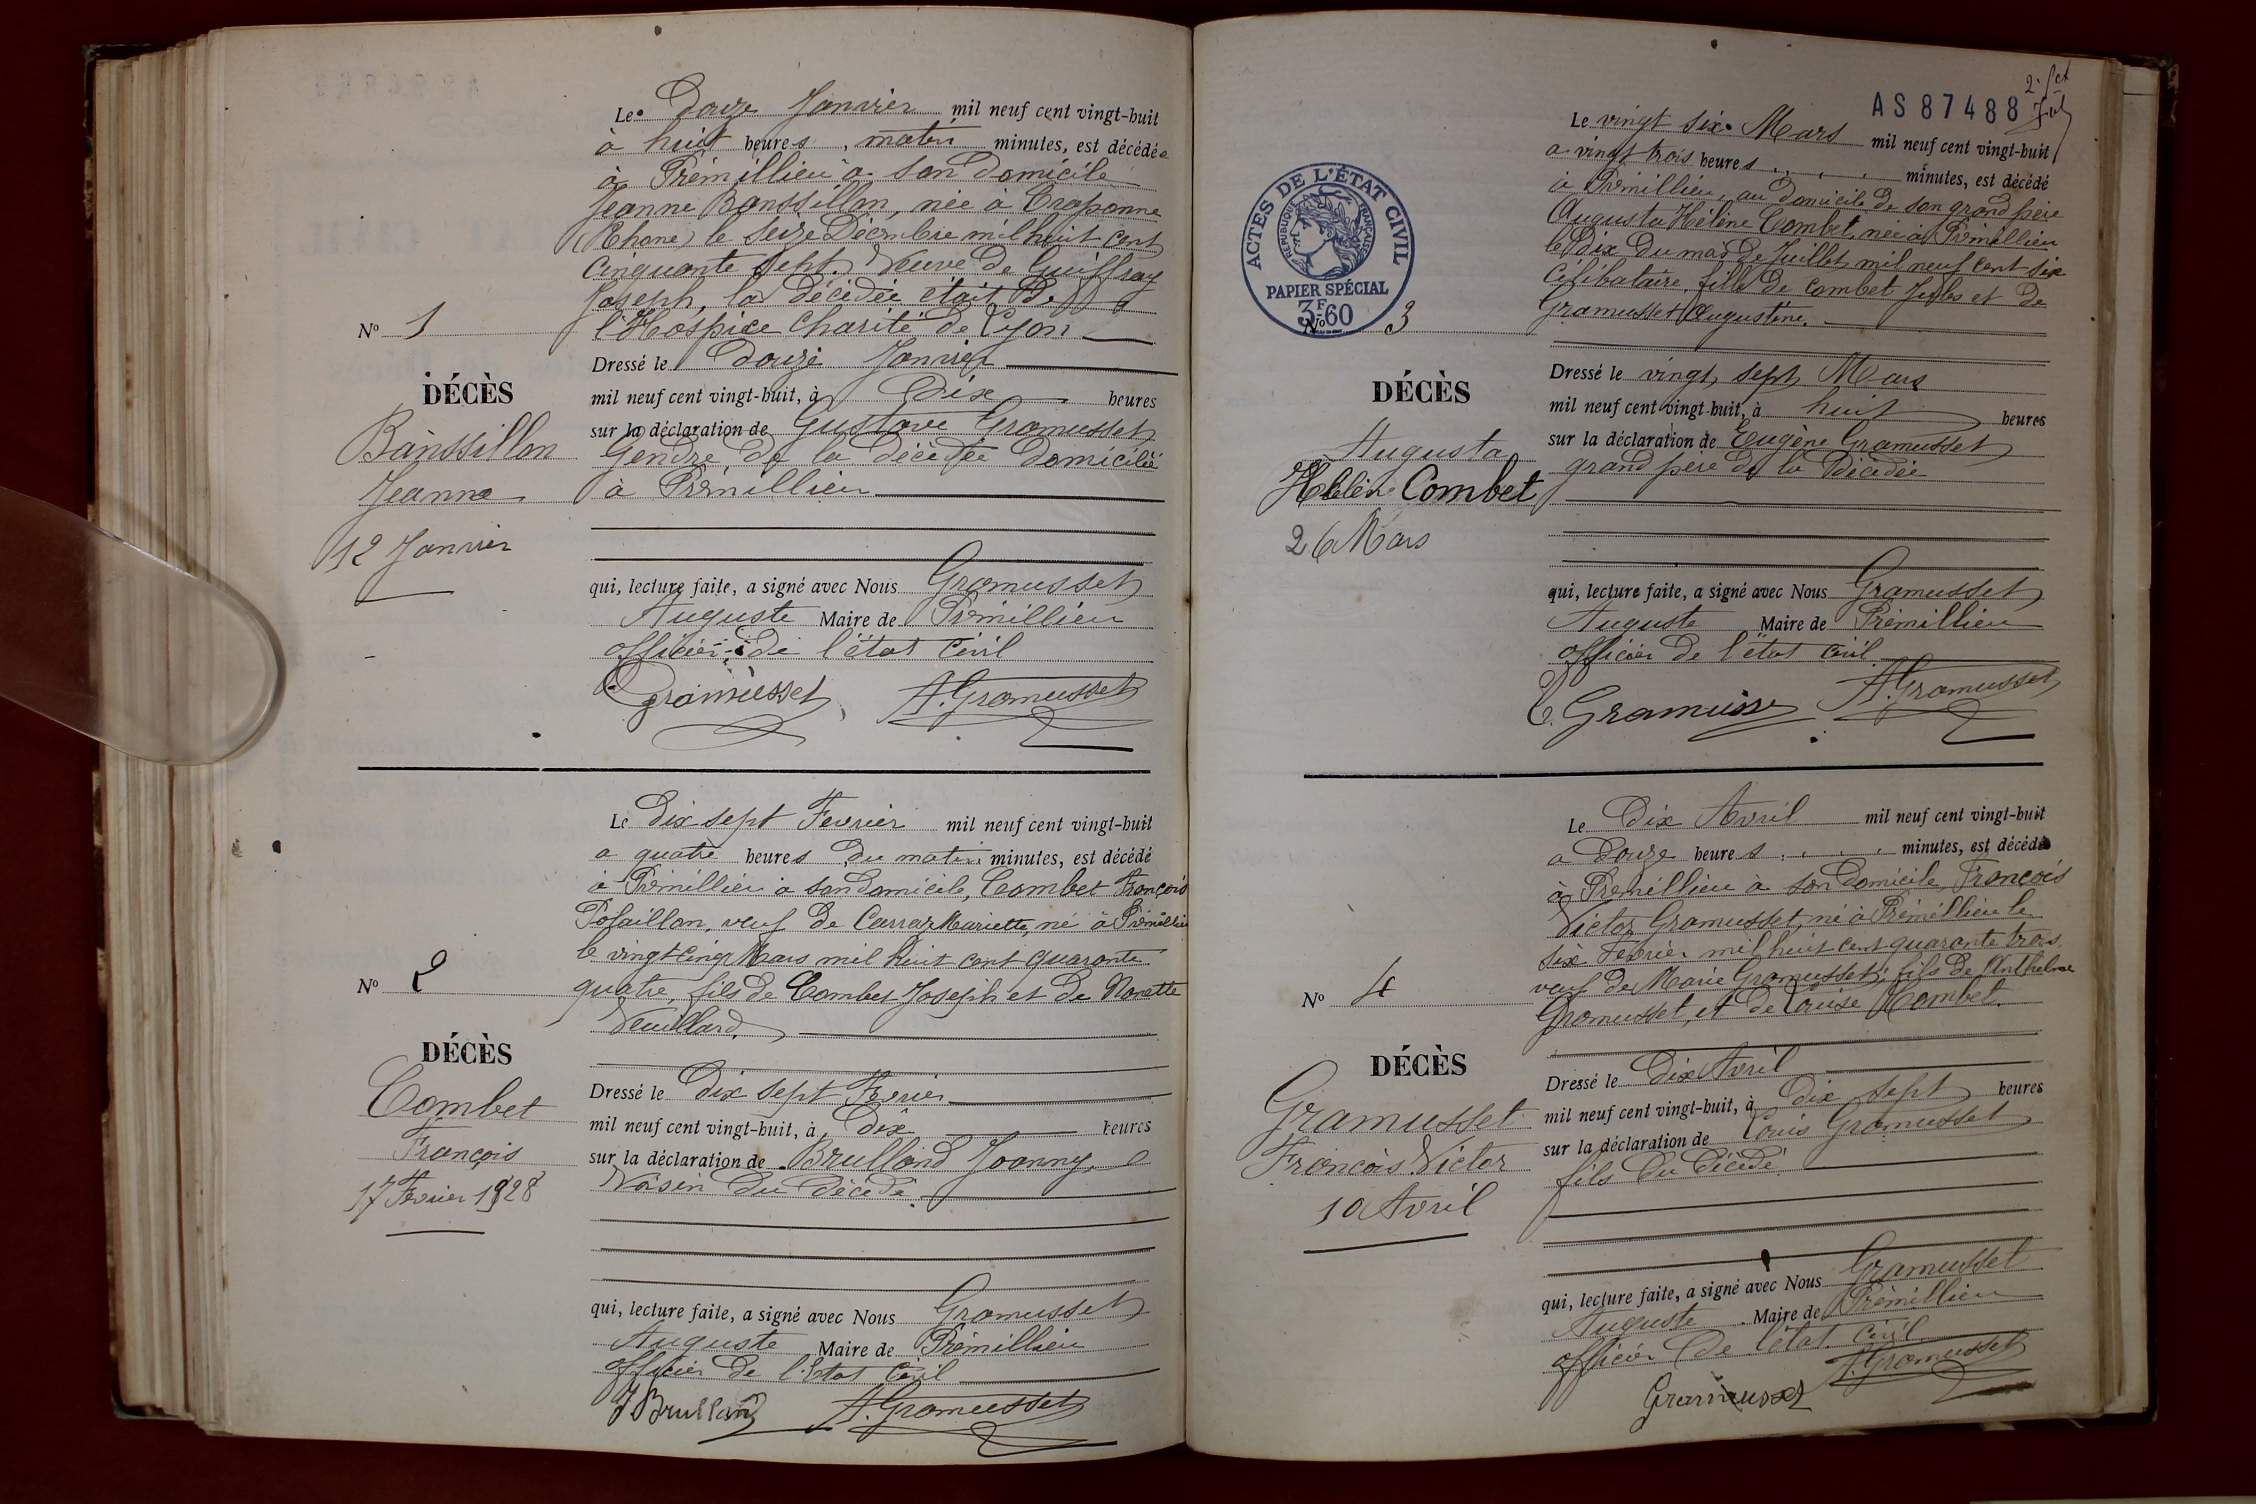 Le Douze Janvier mil neuf cent vingt-huit
à huit heures, matin minutes, est décédée
à Prémillieu à son domicile
Jeanne Banssillon, née à Craponne
(Rhone) le seize Décembre mil huit cent
cinquante sept. Veuve de Guiffray
Joseph, la décédée était de
l'Hospice Charité de Lyon
Nº 1
Dressé le douze Janvier
DÉCÈS
mil neuf cent vingt-huit, à Dix heures
sur la déclaration de Gustave Gramusset
Banssillon
Gendre de la décédée domicilié
Jeanne
à Prémillieu
12 Janvier
qui, lecture faite, a signé avec Nous Gramusset
Auguste Maire de Prémillieu
officier de l'état civil
Gramusset A. Gramusset
Le Dix sept Fevrier mil neuf cent vingt-huit
a quatre heures du matin minutes, est décédé
à Prémillieu a son domicile, Combet François
Pofaillon, veuf de Carraz Mariette, né à Prémillieu
le vingt cinq Mars mil huit cent quarante
quatre, fils de Combet Joseph et de Nanette
Nº 2
Veuillard.
DÉCÈS
Combet
Dressé le Dix sept Fevrier
mil neuf cent vingt-huit, à Dix heures
François
sur la déclaration de Brulland Joanny,
17 Fevrier 1928
Voisin du décédé.
qui, lecture faite, a signé avec Nous Gramusset
Auguste Maire de Prémillieu
officier de l'Etat Civil
J Brulland A. Gramusset
AS87488
ACTES DE L'ÉTAT CIVIL
RÉPUBLIQUE FRANÇAISE
PAPIER SPÉCIAL
3F.60
Le vingt six Mars mil neuf cent vingt-huit
a vingt trois heures minutes, est décédé
à Prémillieu, au domicile de son grand père
Augusta Hélène Combet, née à Prémillieu
le Dix du mois de Juillet mil neuf cent six
Célibataire, fille de Combet Jules et de
Gramusset Augustine.
Nº 3
Dressé le vingt sept Mars
DÉCÈS
mil neuf cent vingt-huit, à huit heures
sur la déclaration de Eugène Gramusset
Augusta
grand père de la Décédée
Hélène Combet
26 Mars
qui, lecture faite, a signé avec Nous Gramusset
Auguste Maire de Prémillieu
officier de l'état civil
E. Gramusset A. Gramusset
Le Dix Avril mil neuf cent vingt-huit
a Douze heures minutes, est décédé
à Prémillieu à son domicile, François
Victor Gramusset, né à Prémillieu le
six Fevrier mil huit cent quarante trois
veuf de Marie Gramusset, fils de Anthelme
Gramusset, et de Louise Combet.
Nº 4
DÉCÈS
Dressé le Dix Avril
mil neuf cent vingt-huit, à Dix sept heures
Gramusset
sur la déclaration de Louis Gramusset
François Victor
fils du décédé
10 Avril
qui, lecture faite, a signé avec Nous Gramusset
Auguste Maire de Prémillieu
officier de l'état civil
A. Gramusset
Gramusset